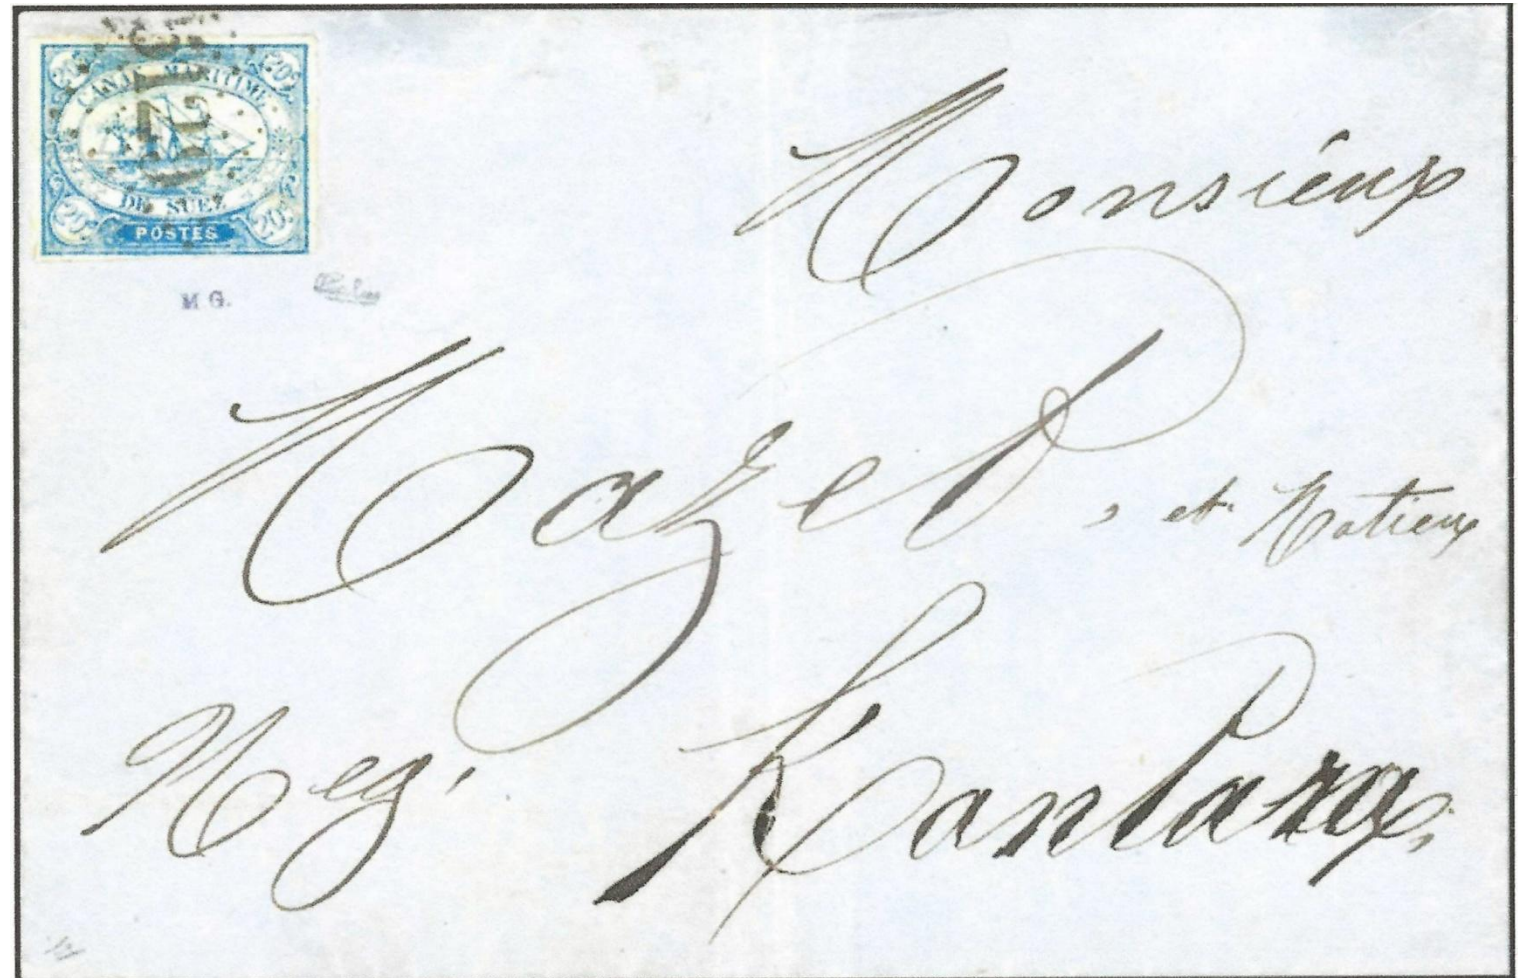 20c 20c
CANAL MARITIME
DE SUEZ
20c 20c
POSTES
5129
M G.
Monsieur
Mazel, et Matieux
Neg.
Kantara,